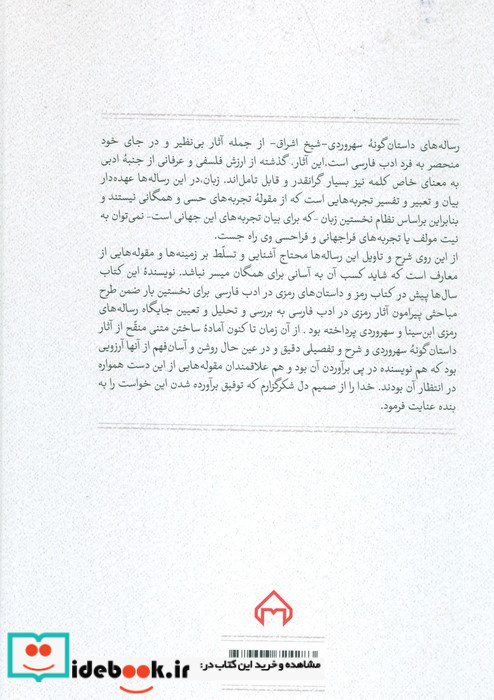 رساله‌های داستان‌گونهٔ سهروردی-شیخ اشراق- از جمله آثار بی‌نظیر و در جای خود
منحصر به فرد ادب فارسی است.این آثار، گذشته از ارزش فلسفی و عرفانی از جنبهٔ ادبی
به معنای خاص کلمه نیز بسیار گرانقدر و قابل تامل‌اند. زبان،در این رساله‌ها عهده‌دار
بیان و تعبیر و تفسیر تجربه‌هایی است که از مقولهٔ تجربه‌های حسی و همگانی نیستند و
بنابراین براساس نظام نخستین زبان -که برای بیان تجربه‌های این جهانی است- نمی‌توان به
نیت مولف یا تجربه‌های فراجهانی و فراحسی وی راه جست.
از این روی شرح و تاویل این رساله‌ها محتاج آشنایی و تسلّط بر زمینه‌ها و مقوله‌هایی از
معارف است که شاید کسب آن به آسانی برای همگان میسر نباشد. نویسندهٔ این کتاب
سال‌ها پیش در کتاب رمز و داستان‌های رمزی در ادب فارسی برای نخستین بار ضمن طرح
مباحثی پیرامون آثار رمزی در ادب فارسی به بررسی و تحلیل و تعیین جایگاه رساله‌های
رمزی ابن‌سینا و سهروردی پرداخته بود . از آن زمان تا کنون آمادهٔ ساختن متنی منقّح از آثار
داستان‌گونهٔ سهروردی و شرح و تفصیلی دقیق و در عین حال روشن و آسان‌فهم از آنها آرزویی
بود که هم نویسنده در پی برآوردن آن بود و هم علاقمندان مقوله‌هایی از این دست همواره
در انتظار آن بودند. خدا را از صمیم دل شکرگزارم که توفیق برآورده شدن این خواست را به
بنده عنایت فرمود.
مشاهده و خرید این کتاب در:
idebook.ir